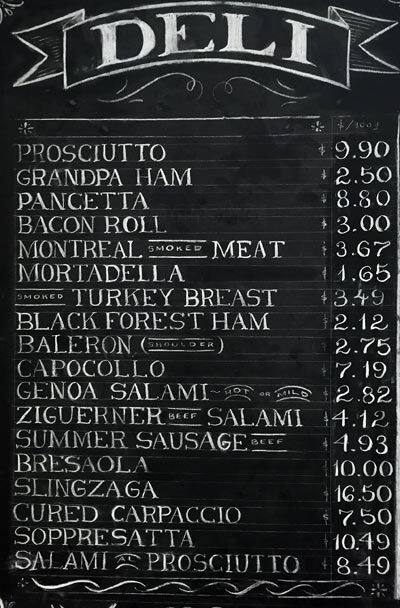 DELI
$/100g
PROSCIUTTO $ 9.90
GRANDPA HAM $ 2.50
PANCETTA $ 8.80
BACON ROLL $ 3.00
MONTREAL SMOKED MEAT $ 3.67
MORTADELLA $ 1.65
SMOKED TURKEY BREAST $ 3.49
BLACK FOREST HAM $ 2.12
BALERON (SHOULDER) $ 2.75
CAPOCOLLO $ 7.19
GENOA SALAMI ~ HOT OR MILD $ 2.82
ZIGUERNER BEEF SALAMI $ 4.12
SUMMER SAUSAGE BEEF $ 4.93
BRESAOLA $ 10.00
SLINGZAGA $ 16.50
CURED CARPACCIO $ 7.50
SOPPRESATTA $ 10.49
SALAMI PROSCIUTTO $ 8.49